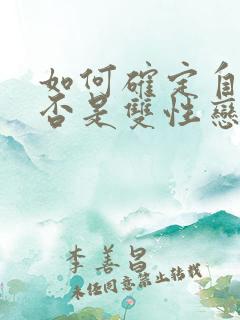 如何確定自
否是雙性戀
李善昌
未任同意禁止轉載